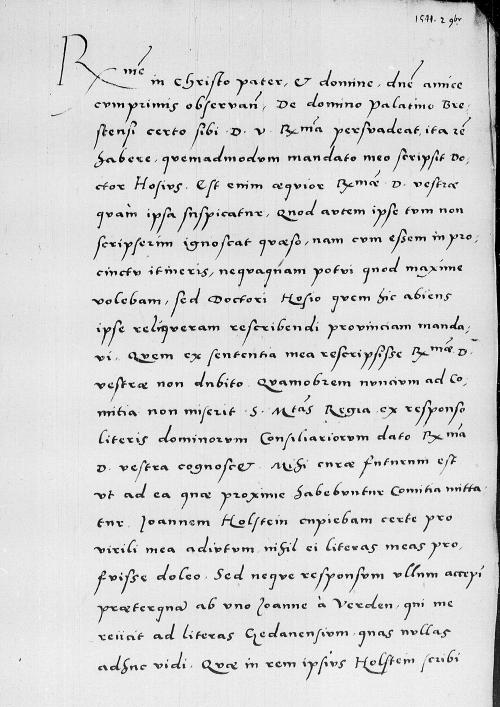 1541. 2 9br
Rme in Christo pater, & domine, dne amice
cumprimis observan, De domino Palatino Bre-
stensi certo sibi D. V. Rma persuadeat, ita re
habere, quemadmodum mandato meo scripsit Do-
ctor Hosius. Est enim æquior Rmæ D. vestræ
quàm ipsa suspicatur. Quod autem ipse tum non
scripserim ignoscat quæso, nam cum essem in pro-
cinctu itineris, nequaquam potui quod maxime
volebam, sed Doctori Hosio quem hic abiens
ipse reliqueram rescribendi provinciam manda-
vi. Quem ex sententia mea rescripsisse Rmæ D.
vestræ non dubito. Quamobrem nuncium ad Co-
mitia non miserit S. Mtas Regia, ex responso
literis dominorum Consiliariorum dato Rma
D. vestra cognoscet. Mihi curæ futurum est
ut ad ea quæ proxime habebuntur Comitia mitta-
tur. Joannem Holstein cupiebam certe pro
virili mea adiutum, nihil ei literas meas pro-
fuisse doleo. Sed neque responsum ullum accepi
præterqua ab uno Joanne à Verden, qui me
reiicit ad literas Gedanensium, quas nullas
adhuc vidi. Quæ in rem ipsius Holstein scribi